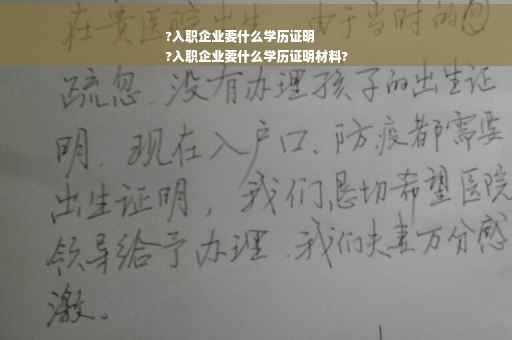 在贵医院出生，由于当时的
?入职企业要什么学历证明
?入职企业要什么学历证明材料?
疏忽.没有办理孩子的出生证
明.现在入户口、防疫都需要
出生证明，我们恳切希望医院
领导给予办理.我们夫妻万分感
激。